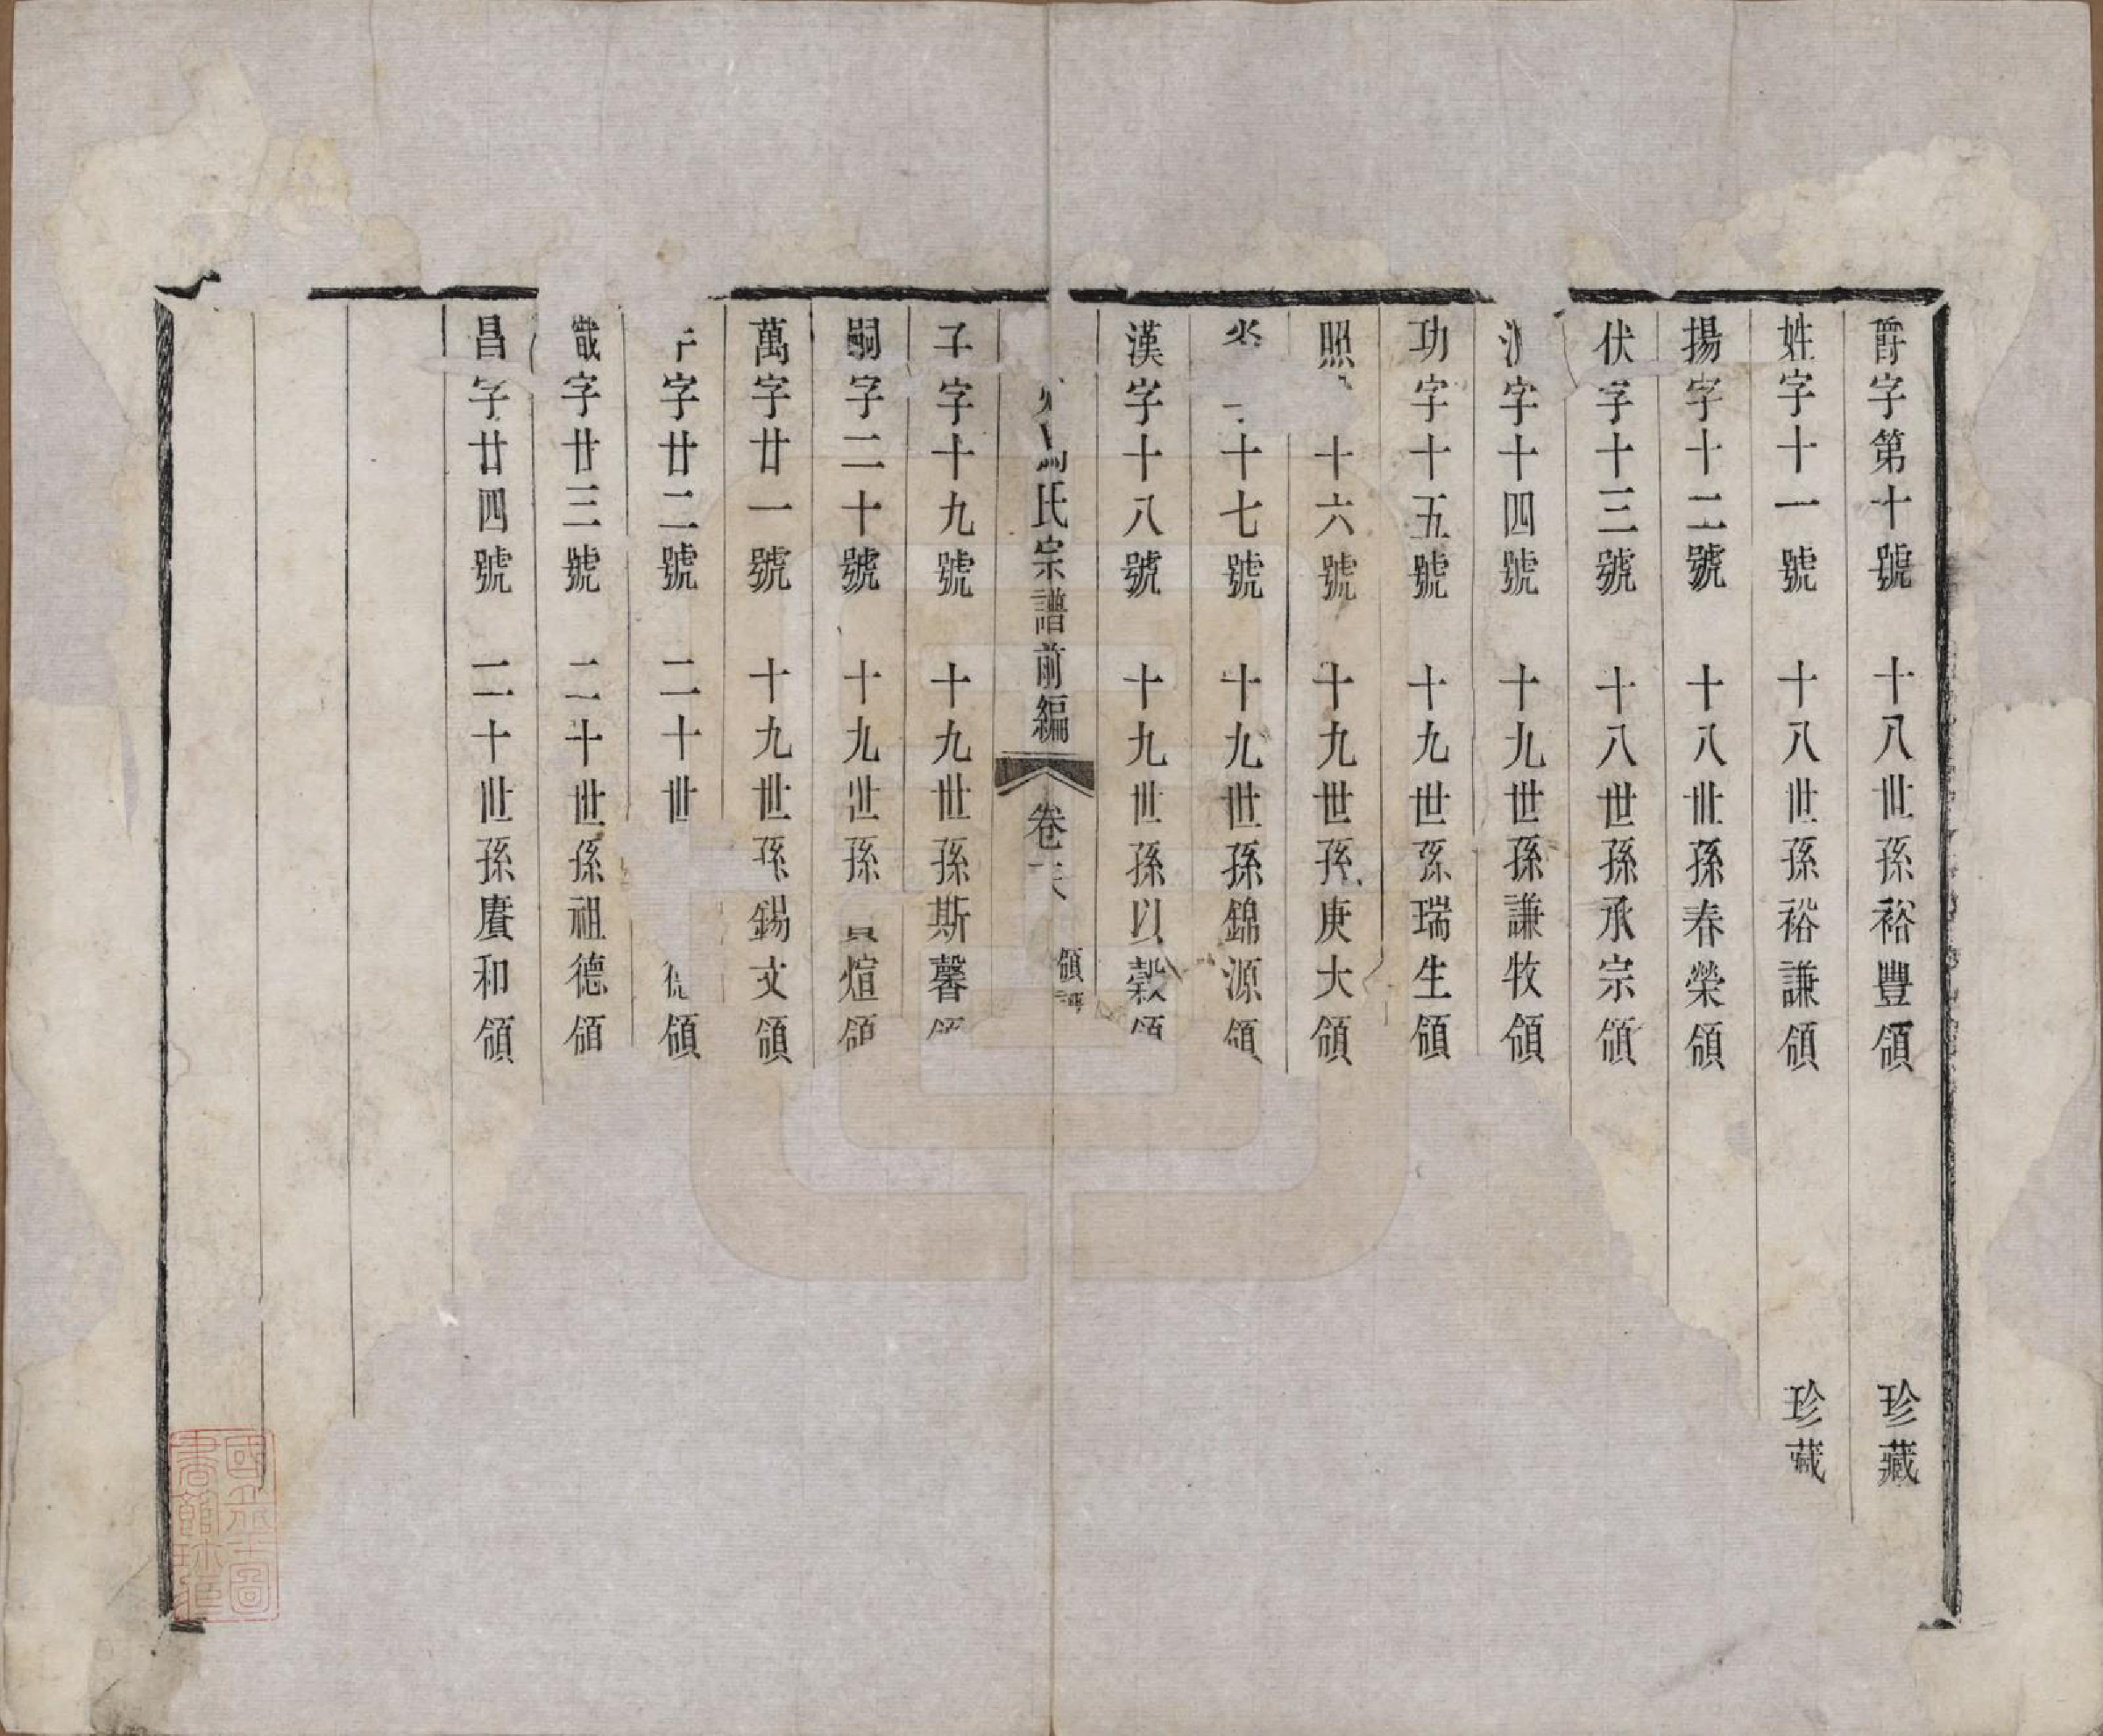 爵字第十號　十八世孫裕豐領　珍藏
姓字十一號　十八世孫裕謙領　珍藏
揚字十二號　十八世孫春榮領
伏字十三號　十八世孫承宗領
字十四號　十九世孫謙牧領
功字十五號　十九世孫瑞生領
照　十六號　十九世孫庚大領
十七號　十九世孫錦源領
漢字十八號　十九世孫以穀領
氏宗譜前編　卷　領譜
子字十九號　十九世孫斯馨領
嗣字二十號　十九世孫　煊領
萬字廿一號　十九世孫錫文領
字廿二號　二十世　領
字廿三號　二十世孫祖德領
昌字廿四號　二十世孫賡和領